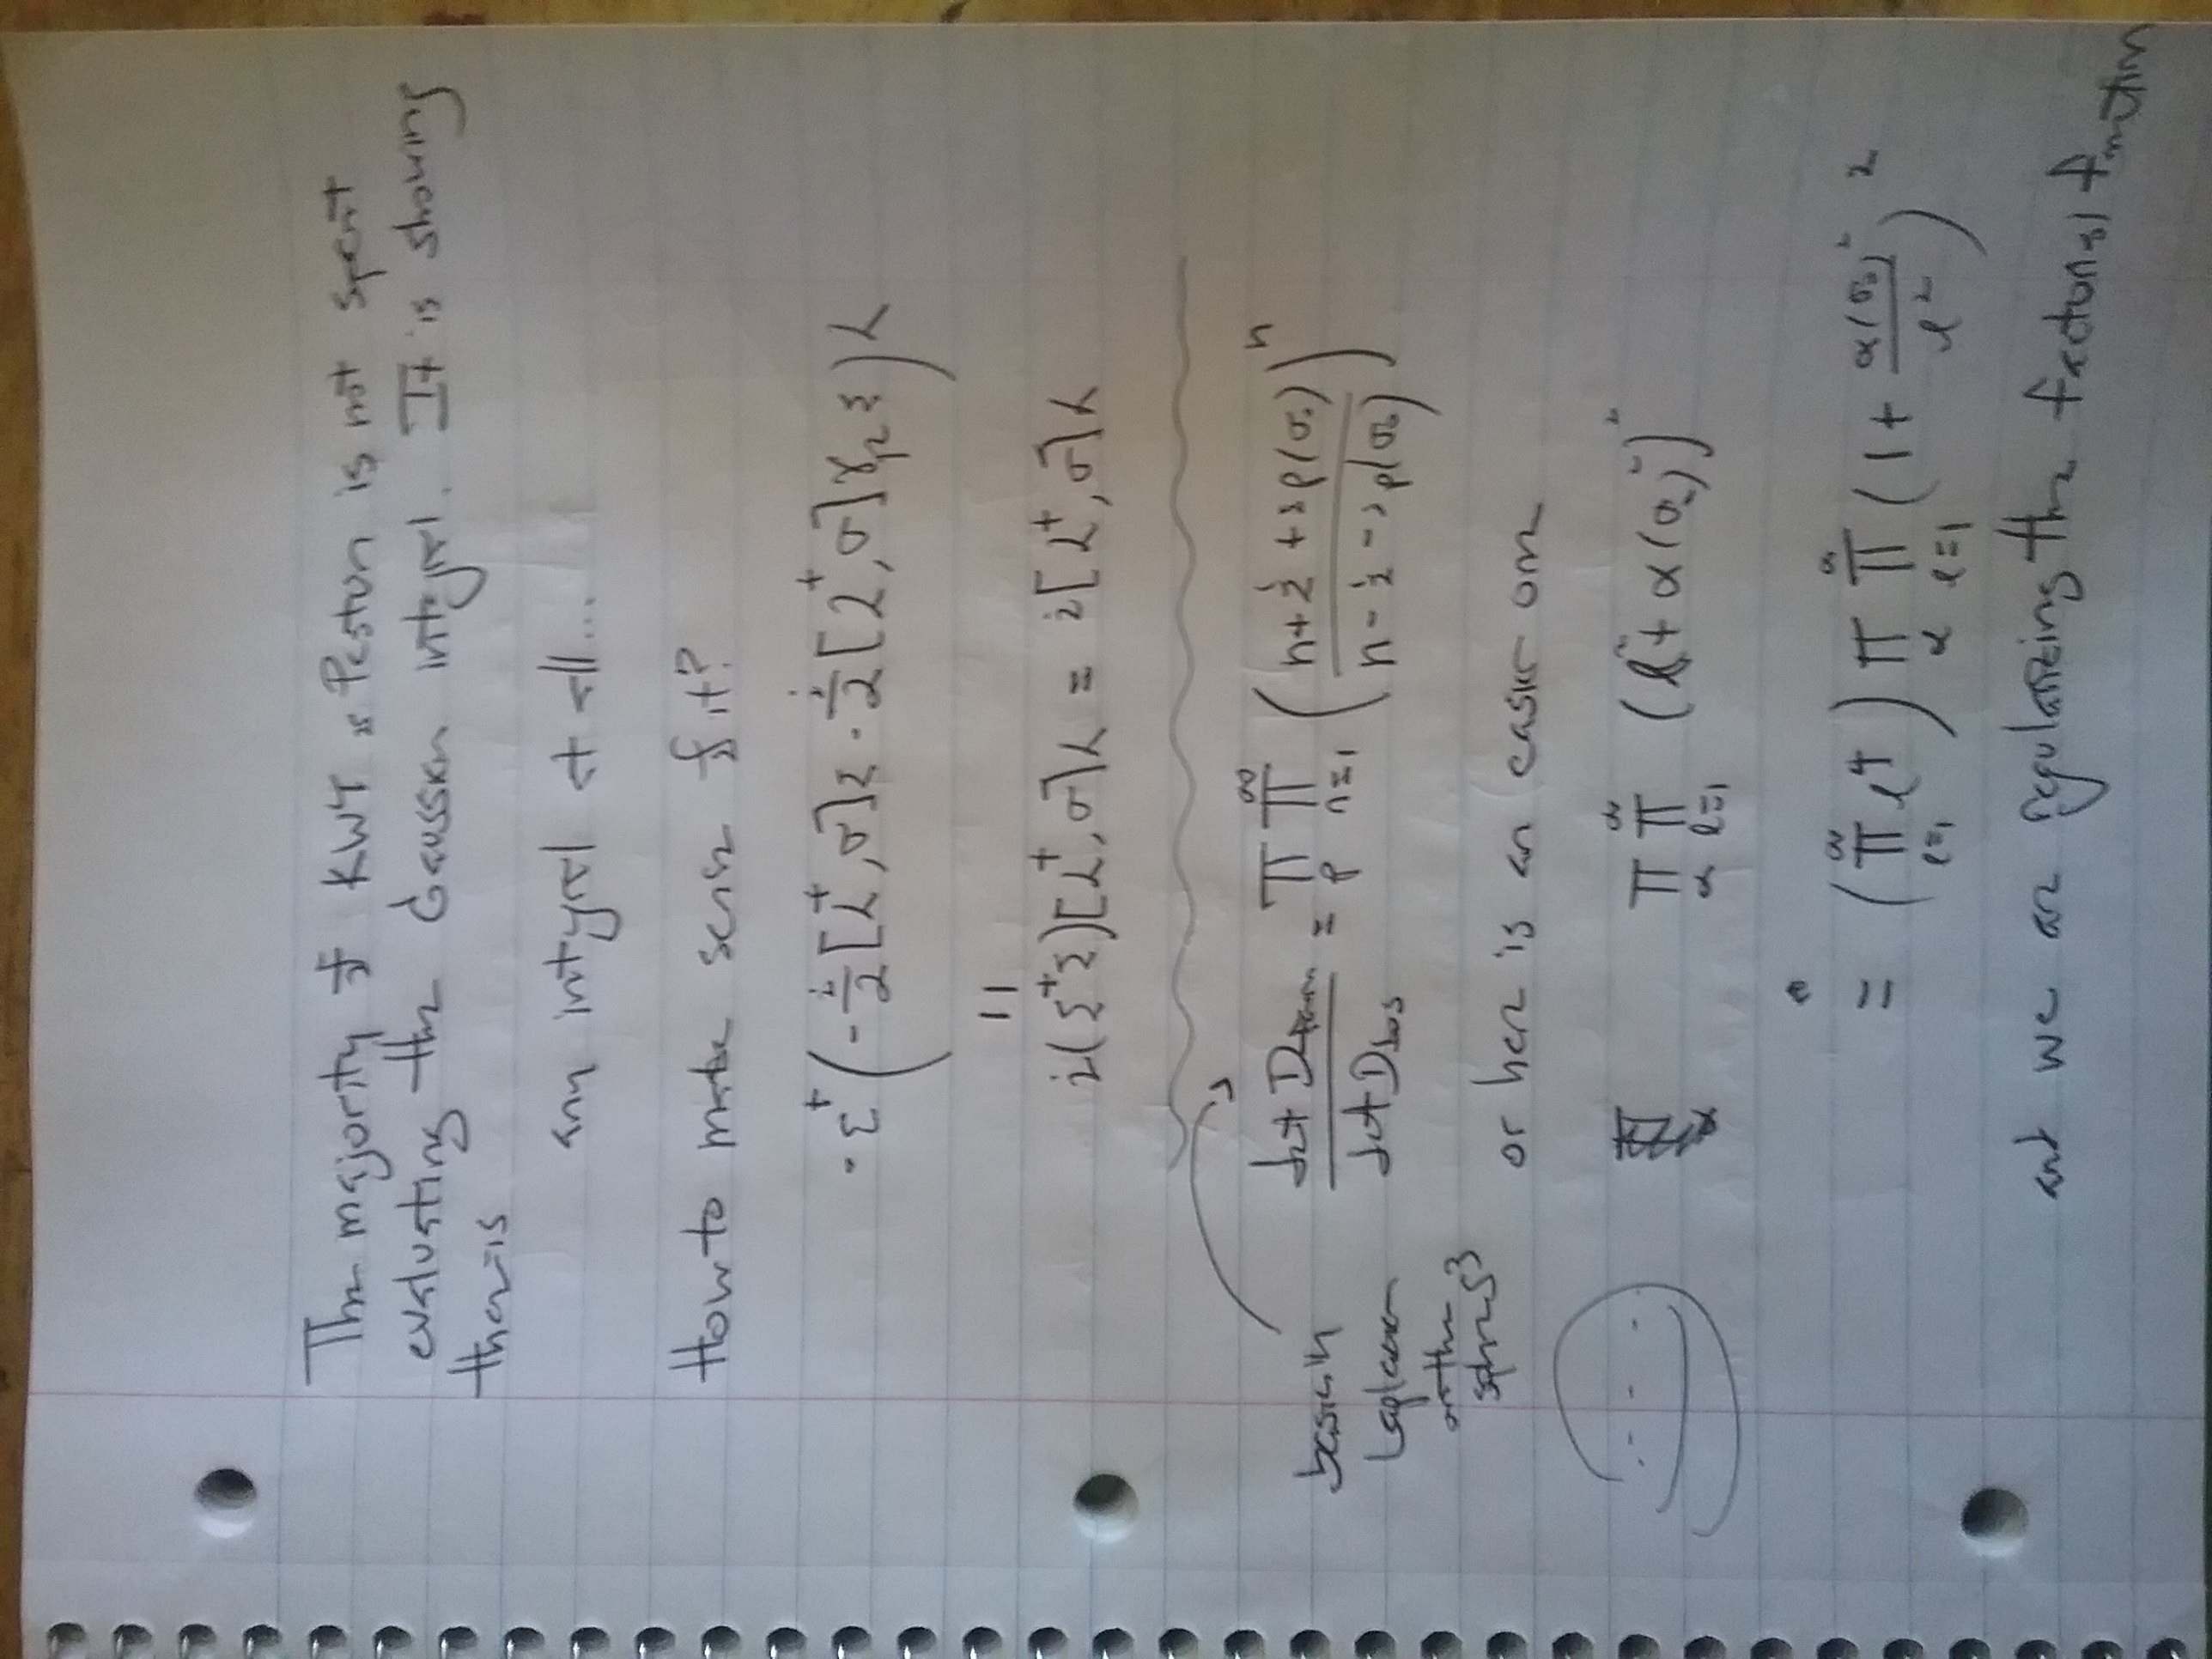 The majority of KWY & Pestun is not spent
evaluating the Gaussian integral. It is showing
there is
an integral at all...
How to make sense of it?
· ε†(-i/2 [λ†, σ]ε · i/2 [λ†, σ]γ₂ε)λ
=
i(ε†ε)[λ†, σ]λ = i[λ†, σ]λ
basically
Laplacian
on the
sphere S³
det D_ferm / det D_bos = ∏_ρ ∏_{n=1}^∞ ((n + 1/2 + iρ(σ₀)) / (n - 1/2 - iρ(σ₀)))^n
or here is an easier one
∏_α ∏_{l=1}^∞ (l² + α(σ₀)²)²
= (∏_{l=1}^∞ l⁴) ∏_α ∏_{l=1}^∞ (1 + α(σ₀)²/l²)²
and we are regularizing the factorial function